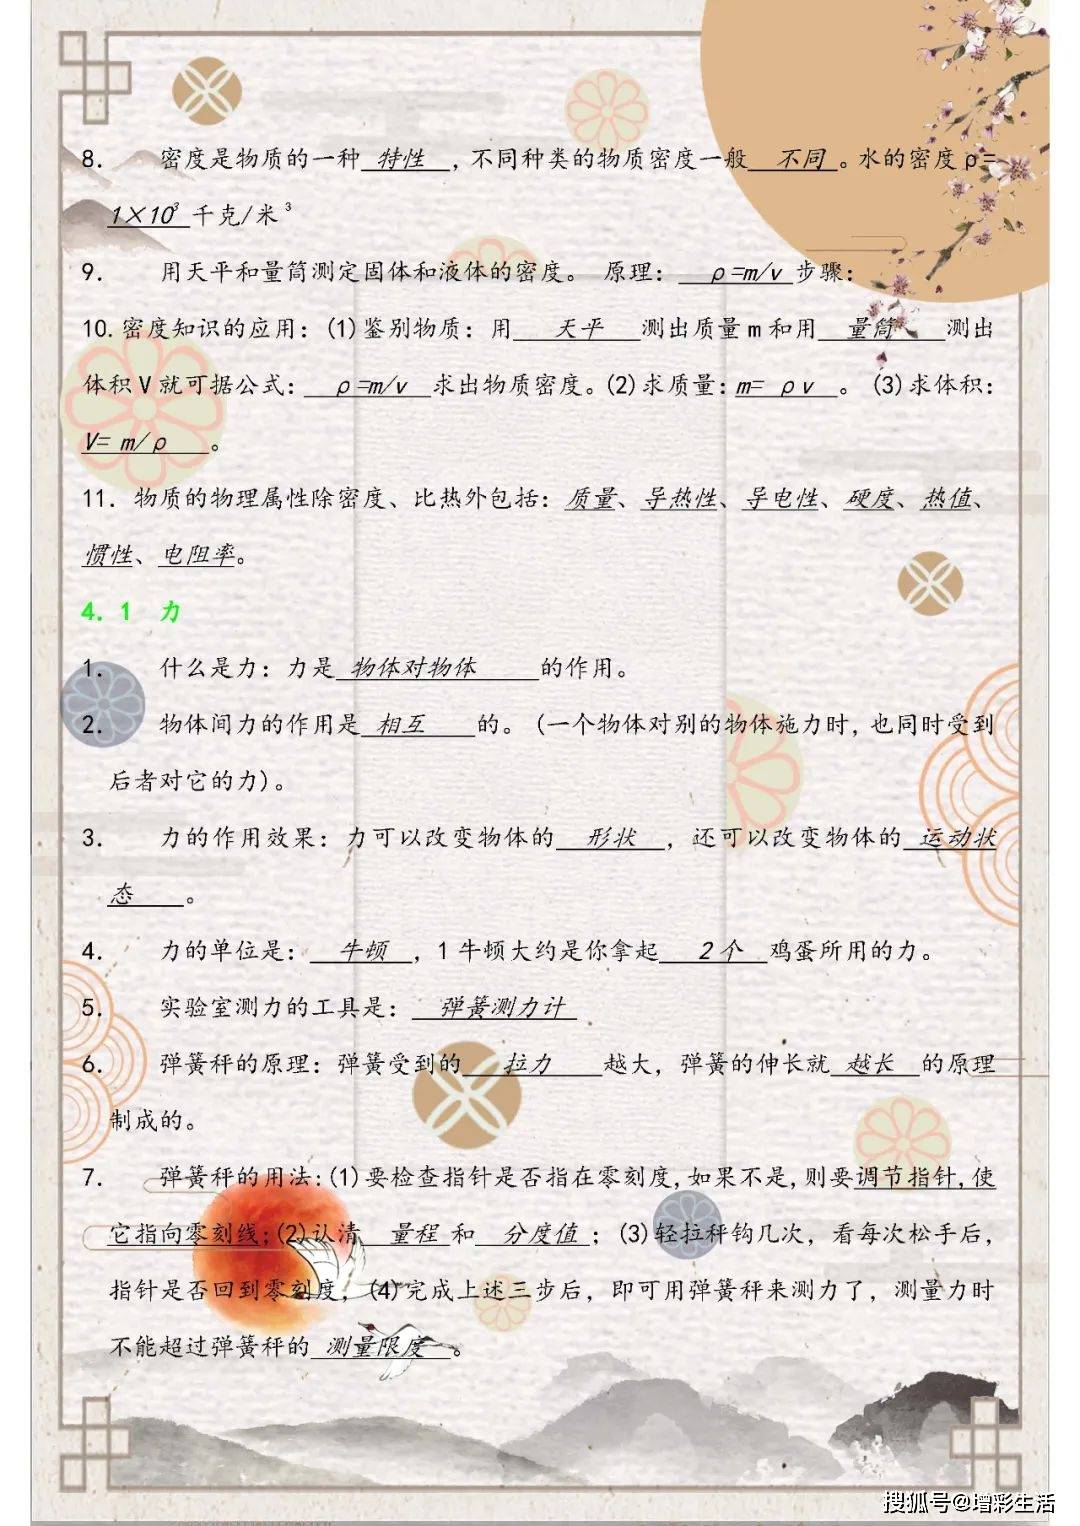 8. 密度是物质的一种 特性 ，不同种类的物质密度一般 不同 。水的密度ρ=
1×10³ 千克/米³
9. 用天平和量筒测定固体和液体的密度。 原理： ρ=m/v 步骤：
10.密度知识的应用：(1)鉴别物质：用 天平 测出质量m和用 量筒 测出
体积V就可据公式： ρ=m/v 求出物质密度。(2)求质量：m= ρv 。 (3)求体积：
V= m/ρ 。
11. 物质的物理属性除密度、比热外包括：质量、导热性、导电性、硬度、热值、
惯性、电阻率。
4.1 力
1. 什么是力：力是 物体对物体 的作用。
2. 物体间力的作用是 相互 的。（一个物体对别的物体施力时，也同时受到
后者对它的力）。
3. 力的作用效果：力可以改变物体的 形状 ，还可以改变物体的 运动状
态 。
4. 力的单位是： 牛顿 ，1牛顿大约是你拿起 2个 鸡蛋所用的力。
5. 实验室测力的工具是： 弹簧测力计
6. 弹簧秤的原理：弹簧受到的 拉力 越大，弹簧的伸长就 越长 的原理
制成的。
7. 弹簧秤的用法：(1)要检查指针是否指在零刻度，如果不是，则要调节指针，使
它指向零刻线；(2)认清 量程 和 分度值 ；(3)轻拉秤钩几次，看每次松手后，
指针是否回到零刻度，(4)完成上述三步后，即可用弹簧秤来测力了，测量力时
不能超过弹簧秤的 测量限度 。
搜狐号@增彩生活